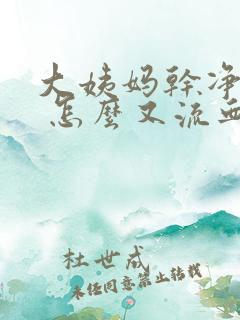 大姨妈幹净
怎麼又流血
杜世成
未经同意禁止转载